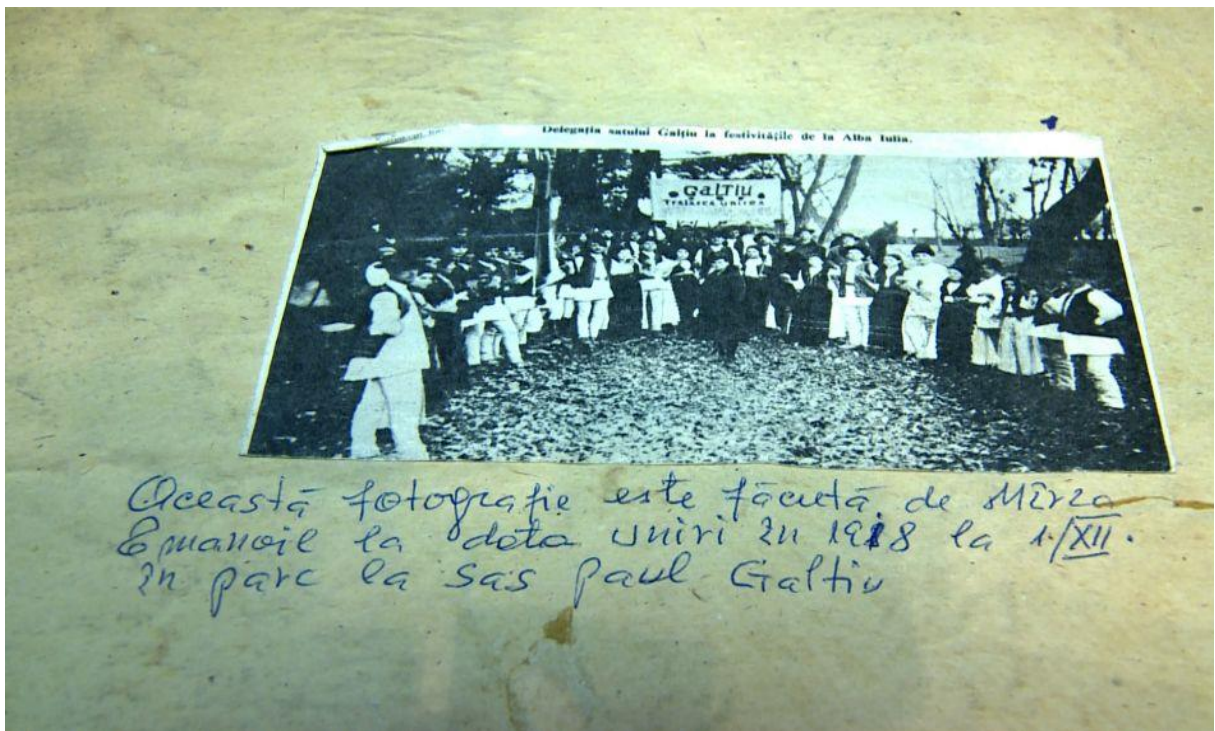 Delegația satului Galțiu la festivitățile de la Alba Iulia.
GALTIU
Traiasca Unirea
Această fotografie este făcută de Mîrza
Emanoil la data uniri în 1918 la 1/XII.
în parc la Sas Paul Galtiu